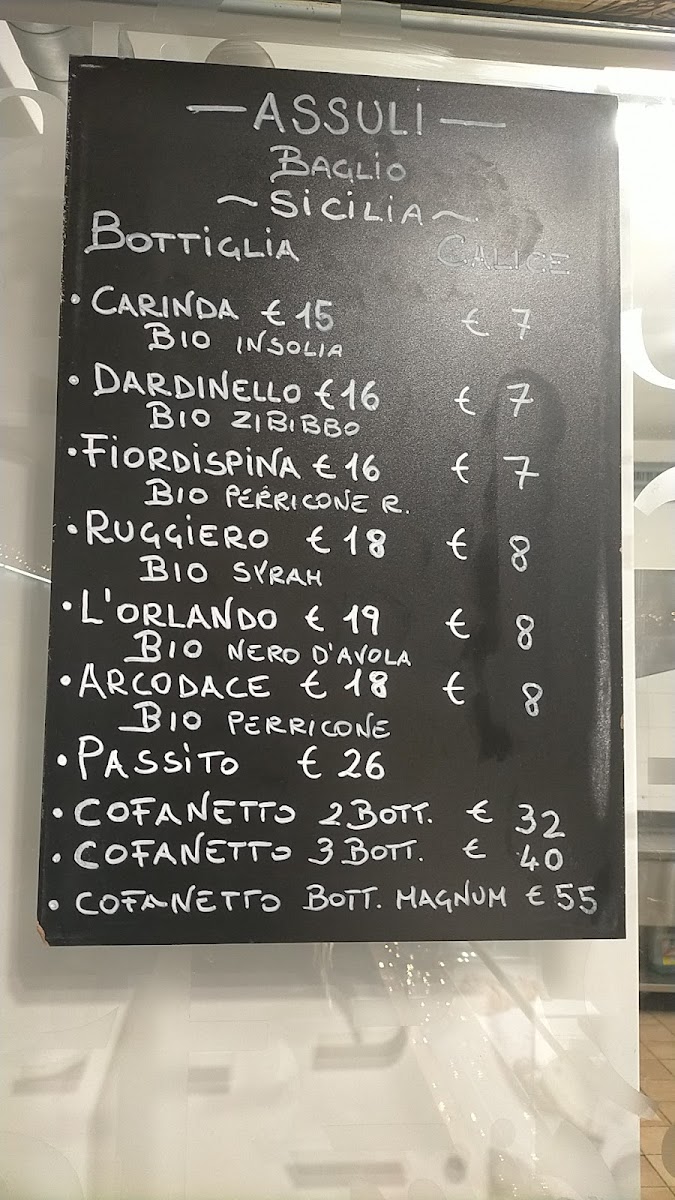 — ASSULI —
BAGLIO
~ SICILIA ~
BOTTIGLIA CALICE
• CARINDA € 15 € 7
BIO INSOLIA
• DARDINELLO € 16 € 7
BIO ZIBIBBO
• FIORDISPINA € 16 € 7
BIO PERRICONE R.
• RUGGIERO € 18 € 8
BIO SYRAH
• L'ORLANDO € 19 € 8
BIO NERO D'AVOLA
• ARCODACE € 18 € 8
BIO PERRICONE
• PASSITO € 26
• COFANETTO 2 BOTT. € 32
• COFANETTO 3 BOTT. € 40
• COFANETTO BOTT. MAGNUM € 55